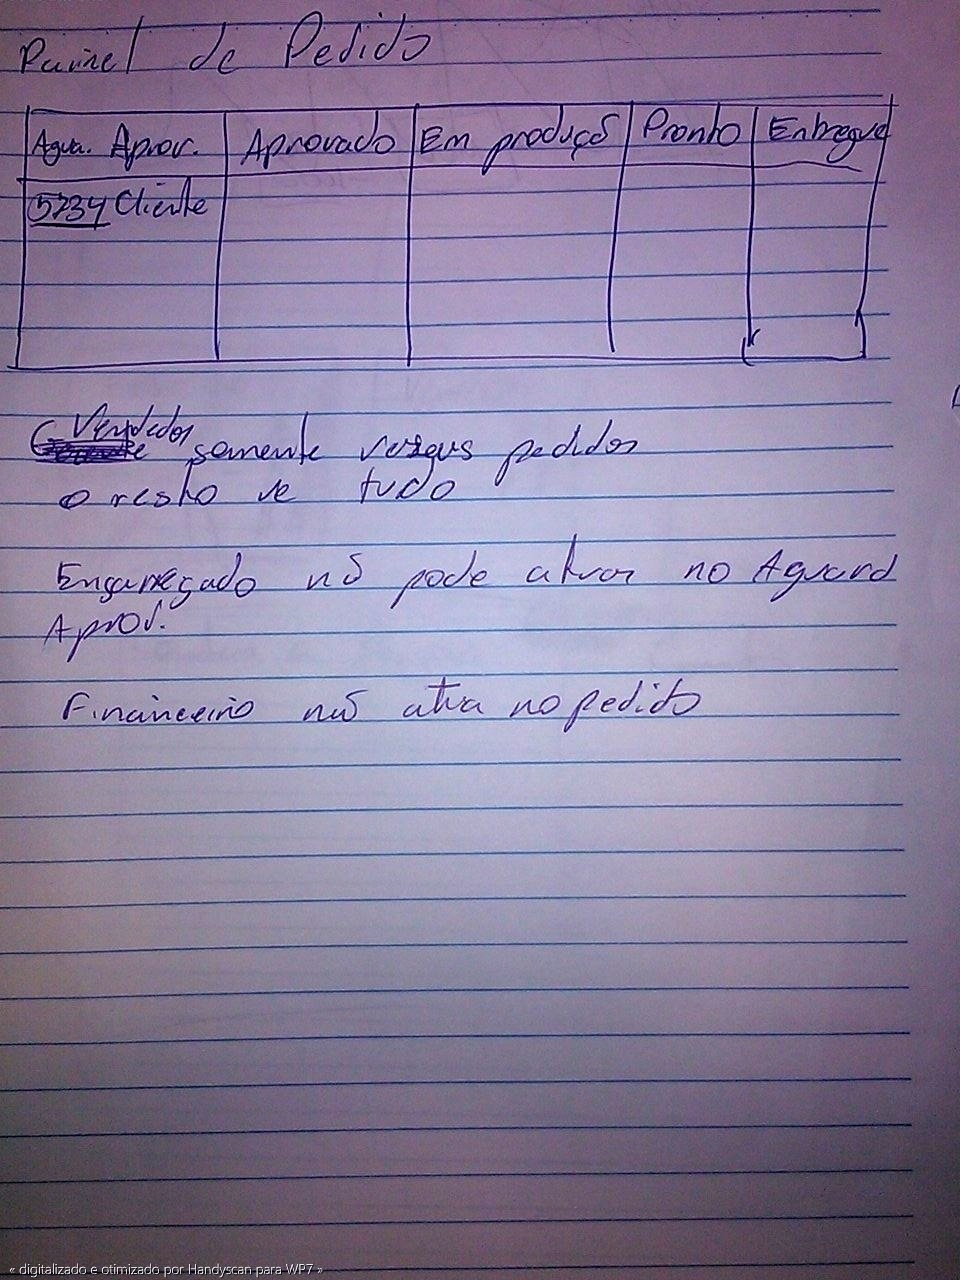 Painel de Pedido
Agua. Aprov. Aprovado Em produçõ Pronto Entregue
5734 Cliente
Vendedor
somente pedidos
o resto ve tudo
Encarregado nõ pode atuar no Aguard
Aprov.
Financeiro nõ atua no pedido
« digitalizado e otimizado por Handyscan para WP7 »